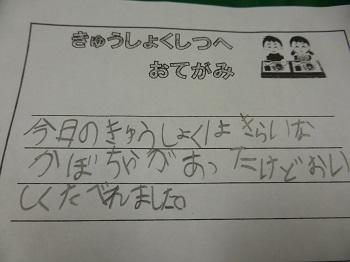 きゅうしょくしつへ
おてがみ
今日のきゅうしょくはきらいな
かぼちゃがあったけどおい
しくたべれました。